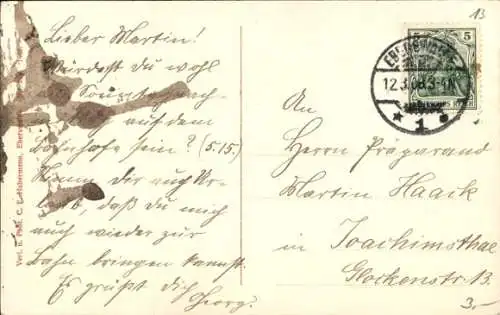 Lieber Martin!
Würdest du wohl
Sonntag nach-
auf dem
Bahnhofe sein? (5.15.)
Nimm dir auch Ur-
laub, daß du mich
auch wieder zur
Bahn bringen kannst.
Es grüßt dich
Georg.
13
5 5
12.3.09.3-4N.
* 1 *
An
Herrn Präparand
Martin Haack
in Joachimsthal
Glockenstr. 13.
3,-